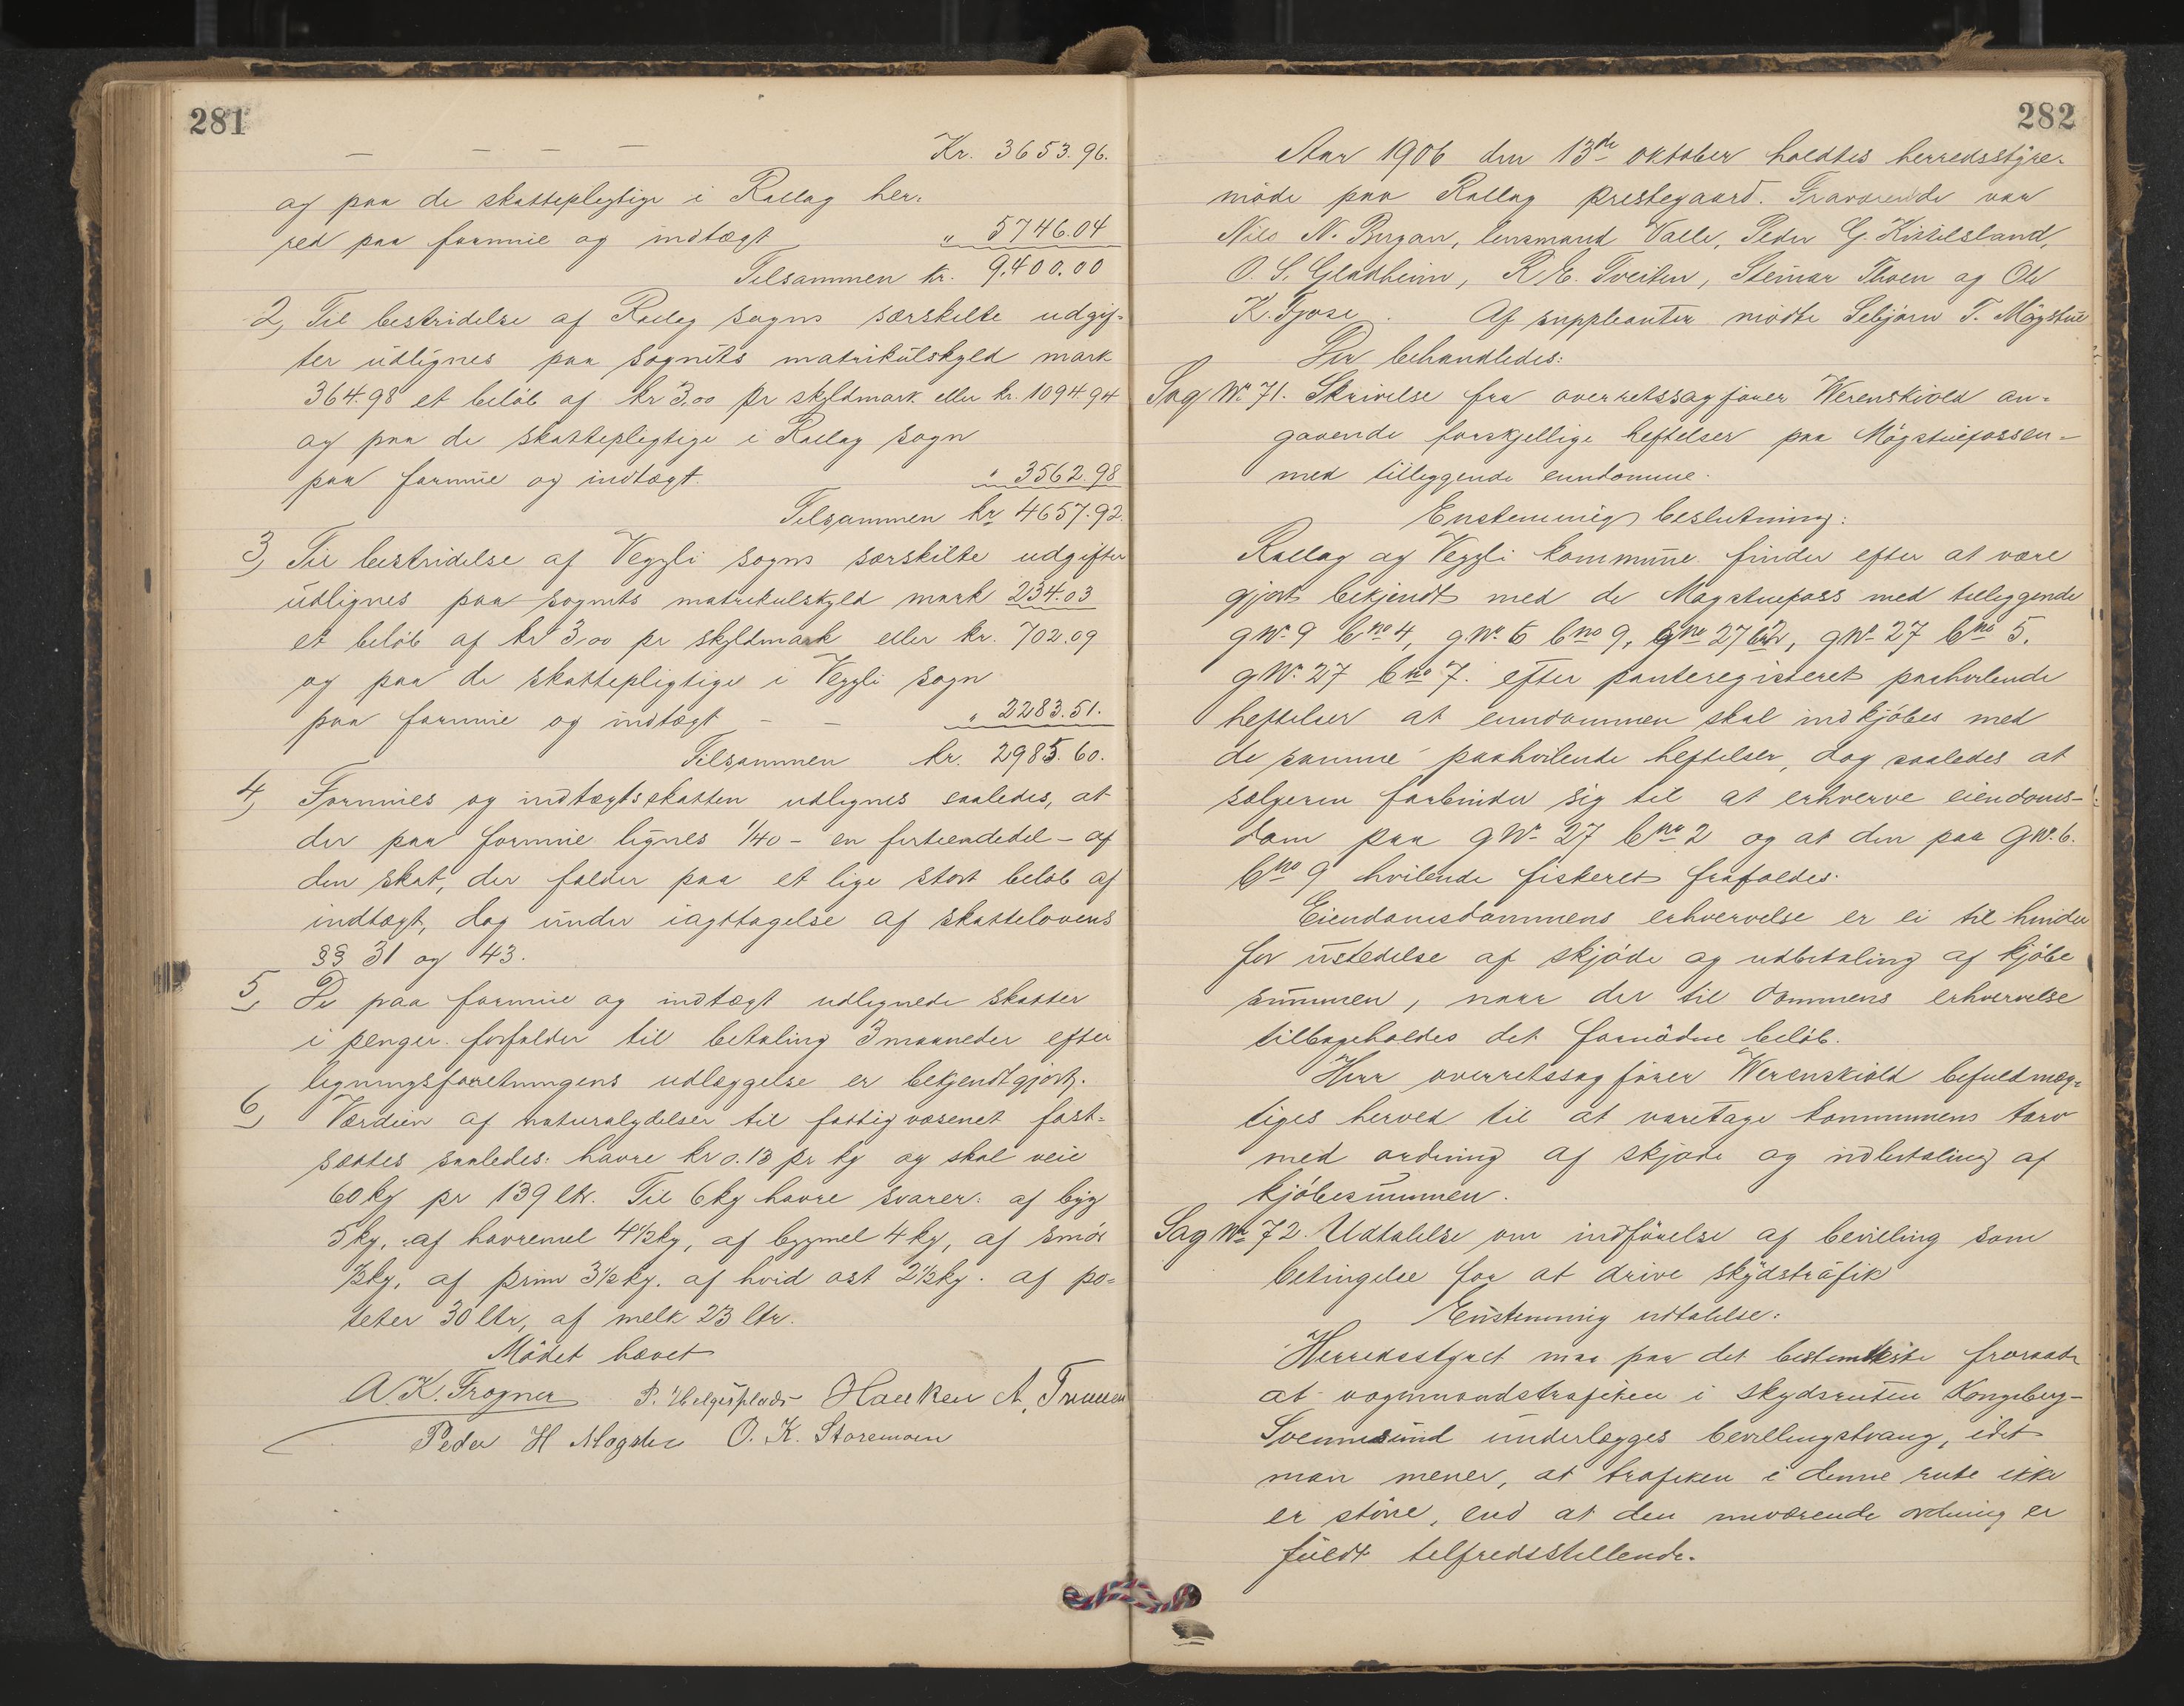 281
— — — — Kr. 3653.96.
og paa de skattepligtige i Rollag her-
red paa formue og indtægt „ 5746.04
Tilsammen kr. 9,400.00
2, Til bestridelse af Rollag sogns særskilte udgif-
ter udlignes paa sognets matrikulskyld mark
364.98 et beløb af kr 3,00 pr skyldmark eller kr. 1094.94
og paa de skattepligtige i Rollag sogn
paa formue og indtægt „ 3562.98
Tilsammen kr 4657.92.
3, Til bestridelse af Veggli sogns særskilte udgifter
udlignes paa sognets matrikulskyld mark 234.03
et beløb af kr 3,00 pr skyldmark eller kr. 702.09
og paa de skattepligtige i Veggli sogn
paa formue og indtægt — — „ 2283.51.
Tilsammen kr. 2985.60.
4, Formues og indtægtsskatten udlignes saaledes, at
der paa formue lignes 1/40 - en firtiendedel - af
den skat, der falder paa et lige stort beløb af
indtægt, dog under iagttagelse af skattelovens
§§ 31 og 43.
5, De paa formue og indtægt udlignede skatter
i penger forfalder til betaling 3 maaneder efter
ligningsforretningens udlæggelse er bekjendtgjort.
6, Værdien af naturalydelser til fattigvæsenet fast-
sættes saaledes: havre kr 0.13 pr kg og skal veie
60 kg pr 139 ltr. Til 6 kg havre svarer: af byg
5 kg, af havremel 4 1/2 kg, af bygmel 4 kg, af smør
1/2 kg, af prim 3 1/2 kg. af hvid ost 2 1/2 kg. af po-
teter 30 ltr, af melk 23 ltr.
Mødet hævet
A. K. Frogner P. Helgesplads Haaken A.
Peder H O. K. Storemoen
282
Aar 1906 den 13de oktober holdtes herredsstyre-
møde paa Rollag prestegaard. Fraværende var
Nils N. Bergan, lensmand Valle, Peder G. Kittilsland,
O. S. Gladheim, R. E. Tveiten, Steinar Thoen og Ole
K. Fjøse. Af suppleanter mødte Sebjørn T. Mogstue
Der behandledes:
Sag No. 71. Skrivelse fra overretssagfører Werenskiold an-
gaaende forskjellige heftelser paa Møgstuefossen
med tilliggende eiendomme.
Enstemmig beslutning:
Rollag og Veggli kommune finder efter at være
gjort bekjendt med de Møgstuefoss med tilliggende
g No. 9 bno 4, g No. 6 bno 9, gno 27 bno 2, g No. 27 bno 5.
g No. 27 bno 7. efter panteregisteret paahvilende
heftelser at eiendommen skal indkjøbes med
de samme paahvilende heftelser, dog saaledes at
sælgeren forbinder sig til at erhverve eiendoms-
dom paa g No. 27 bno 2 og at den paa g No. 6.
bno 9 hvilende fiskeret frafaldes.
Eiendomsdommens erhvervelse er ei til hinder
for udstedelse af skjøde og udbetaling af kjøbe
summen, naar der til dommens erhvervelse
tilbageholdes det fornødne beløb.
Herr overretssagfører Werenskiold befuldmæg-
tiges herved til at varetage kommunens tarv
med ordning af skjøde og udbetaling af
kjøbesummen.
Sag No. 72. Udtalelse om indførelse af bevilling som
betingelse for at drive skydstrafik
Enstemmig udtalelse:
Herredsstyret maa paa det bestemteste fraraade
at vognmandstrafiken i skydsruten Kongsberg-
Svennesund underlægges bevillingstvang, idet
man mener, at trafiken i denne rute ikke
er større, end at den nuværende ordning er
fuldt tilfredsstillende.